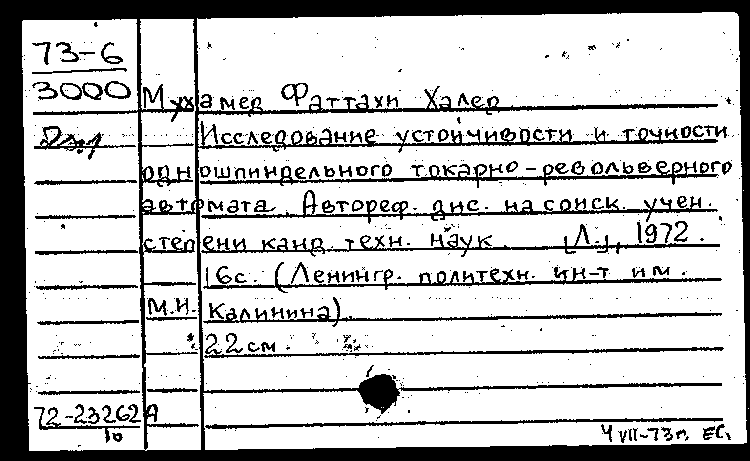 73-6
3000 Мухамед Фаттахи Халед
Исследование устойчивости и точности
одношпиндельного токарно-револьверного
автомата. Автореф. дис. на соиск. учен.
степени канд. техн. наук. [Л.], 1972.
16с. (Ленингр. политехн. ин-т им.
М.И. Калинина).
22 см.
72-23262 А
10
4 VII-73г. ЕС.